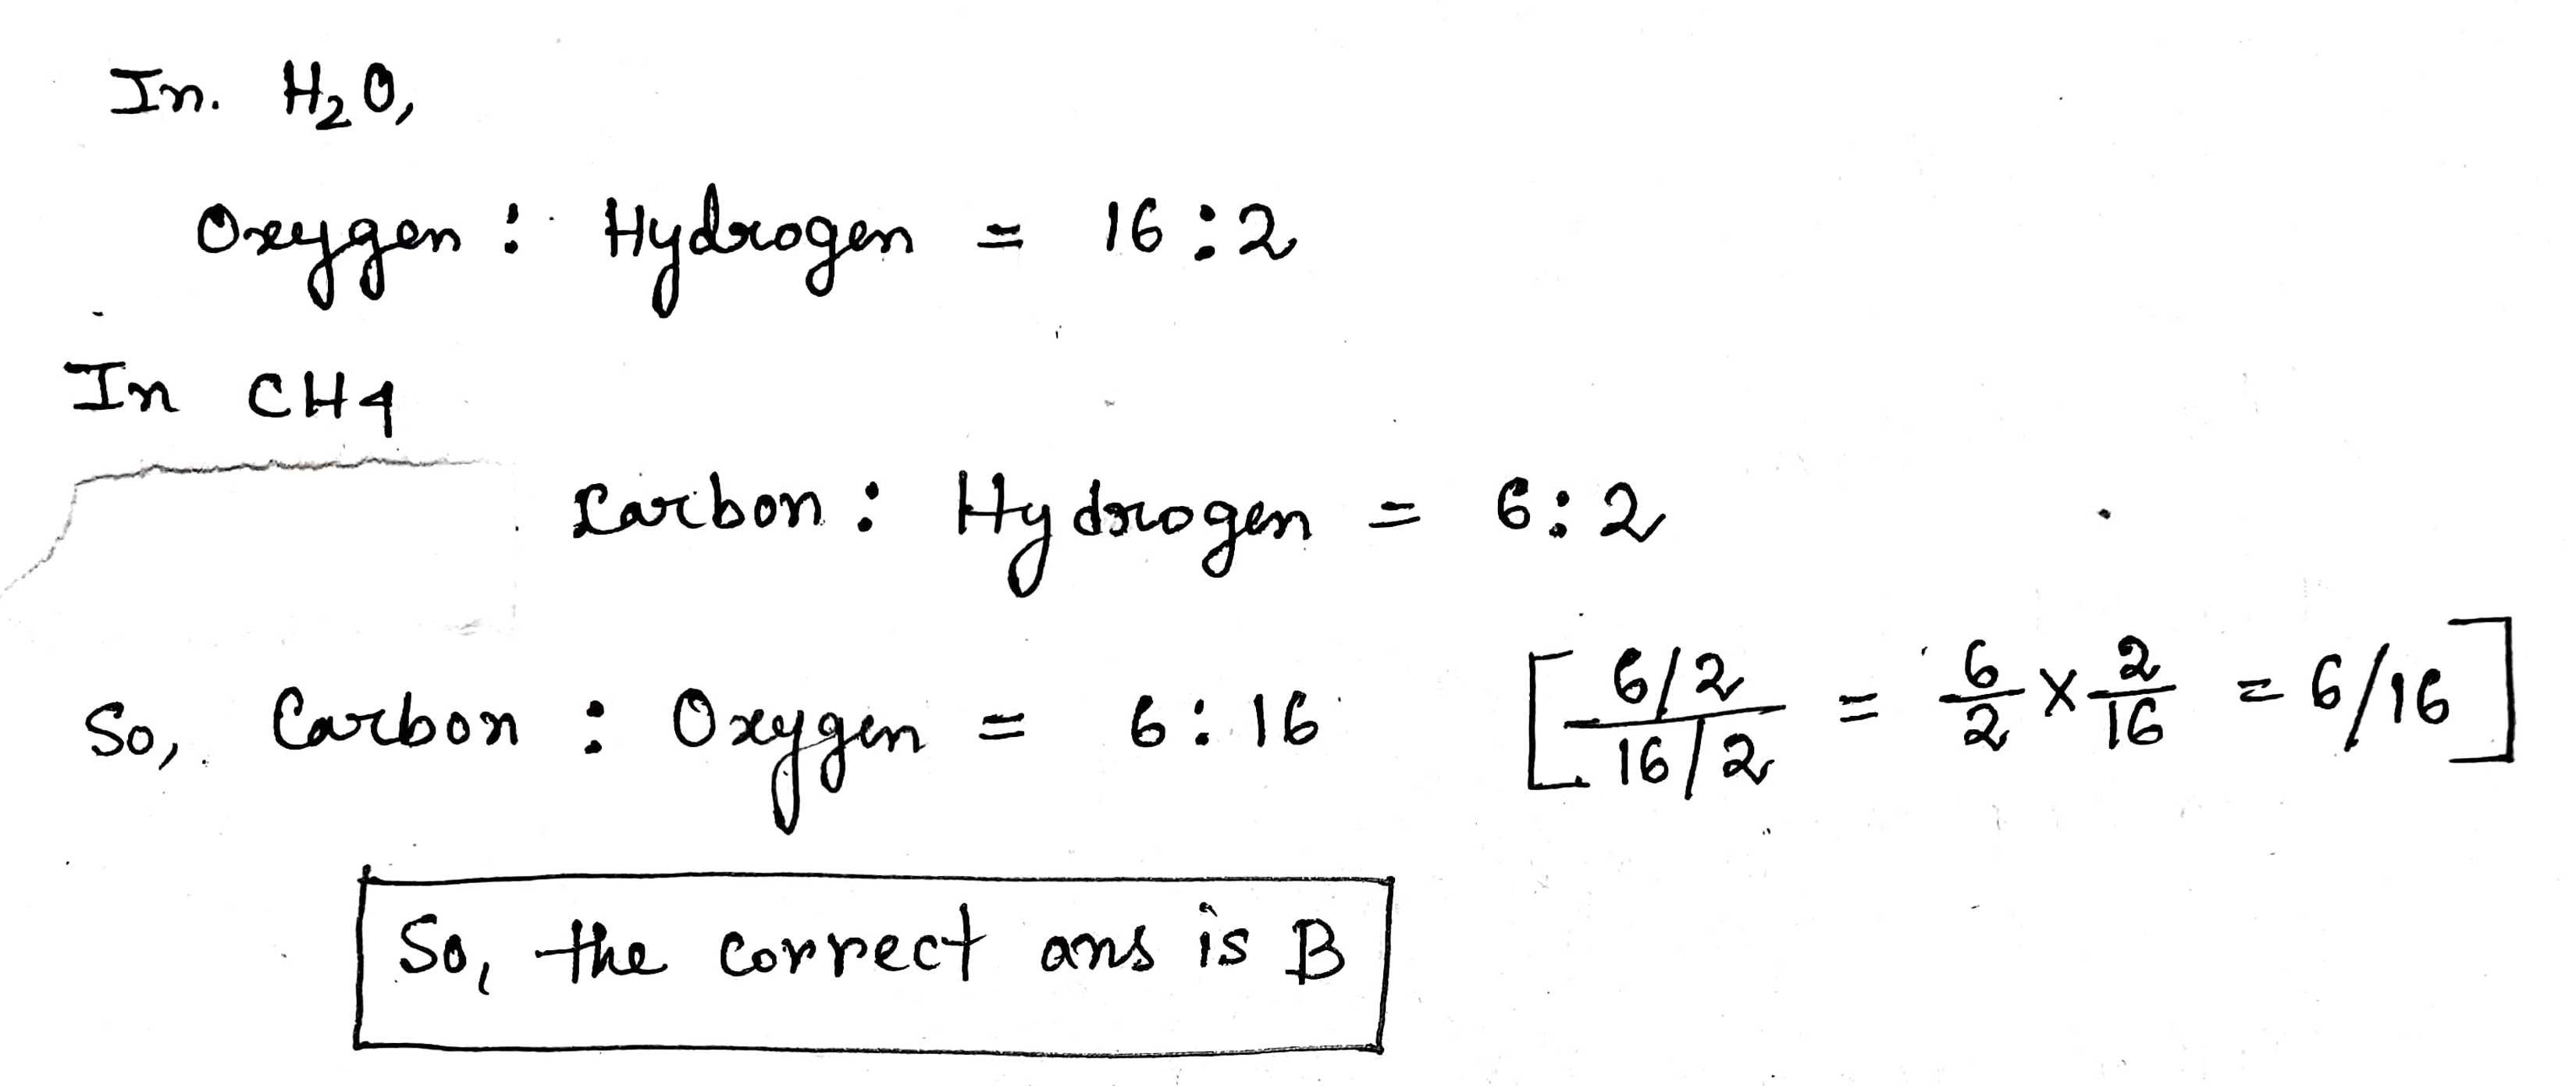 In. H₂O,
Oxygen : Hydrogen = 16 : 2
In CH4
Carbon : Hydrogen = 6 : 2
So, Carbon : Oxygen = 6 : 16 [ (6/2)/(16/2) = 6/2 × 2/16 = 6/16 ]
So, the correct ans is B